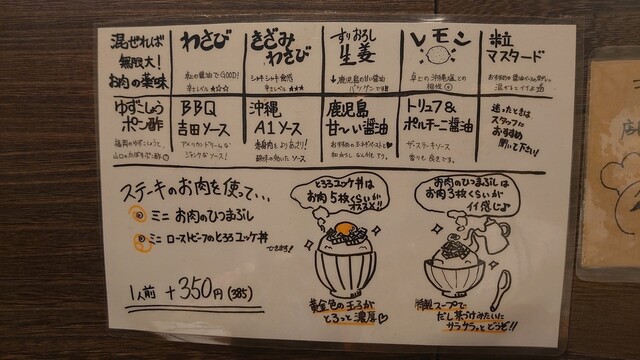 混ぜれば
無限大!
お肉の薬味
わさび
卓上の醤油でGOOD!
きざみ
わさび
シャキシャキ食感
すりおろし
生姜
鹿児島の甘い醤油
バツグンです!!
レモン
卓上の沖縄塩との
相性◎
粒
マスタード
ゆずこしょう
ポン酢
BBQ
吉田ソース
アメリカンドリームな
ジャンクなソース!
沖縄
A1ソース
酸味の効いたソース
鹿児島
甘〜い醤油
トリュフ&
ポルチーニ醤油
ザ・ステーキソース
香りも良きです。
迷ったときは
スタッフに
おすすめ
聞いて下さい!
ステーキのお肉を使って...
ミニ お肉のひつまぶし
ミニ ローストビーフのとろろユッケ丼
できます!
1人前 +350円(385)
とろろユッケ丼は
お肉5枚くらいが
オススメ!!
黄金色の玉子が
とろっと濃厚♡
お肉のひつまぶしは
お肉3枚くらいが
イイ感じ♪
特製スープで
だし茶づけみたいに
サラサラっとどうぞ!!